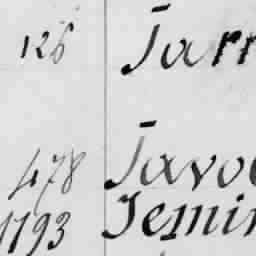 126 Jarr
478 Javo
1793 Jemin